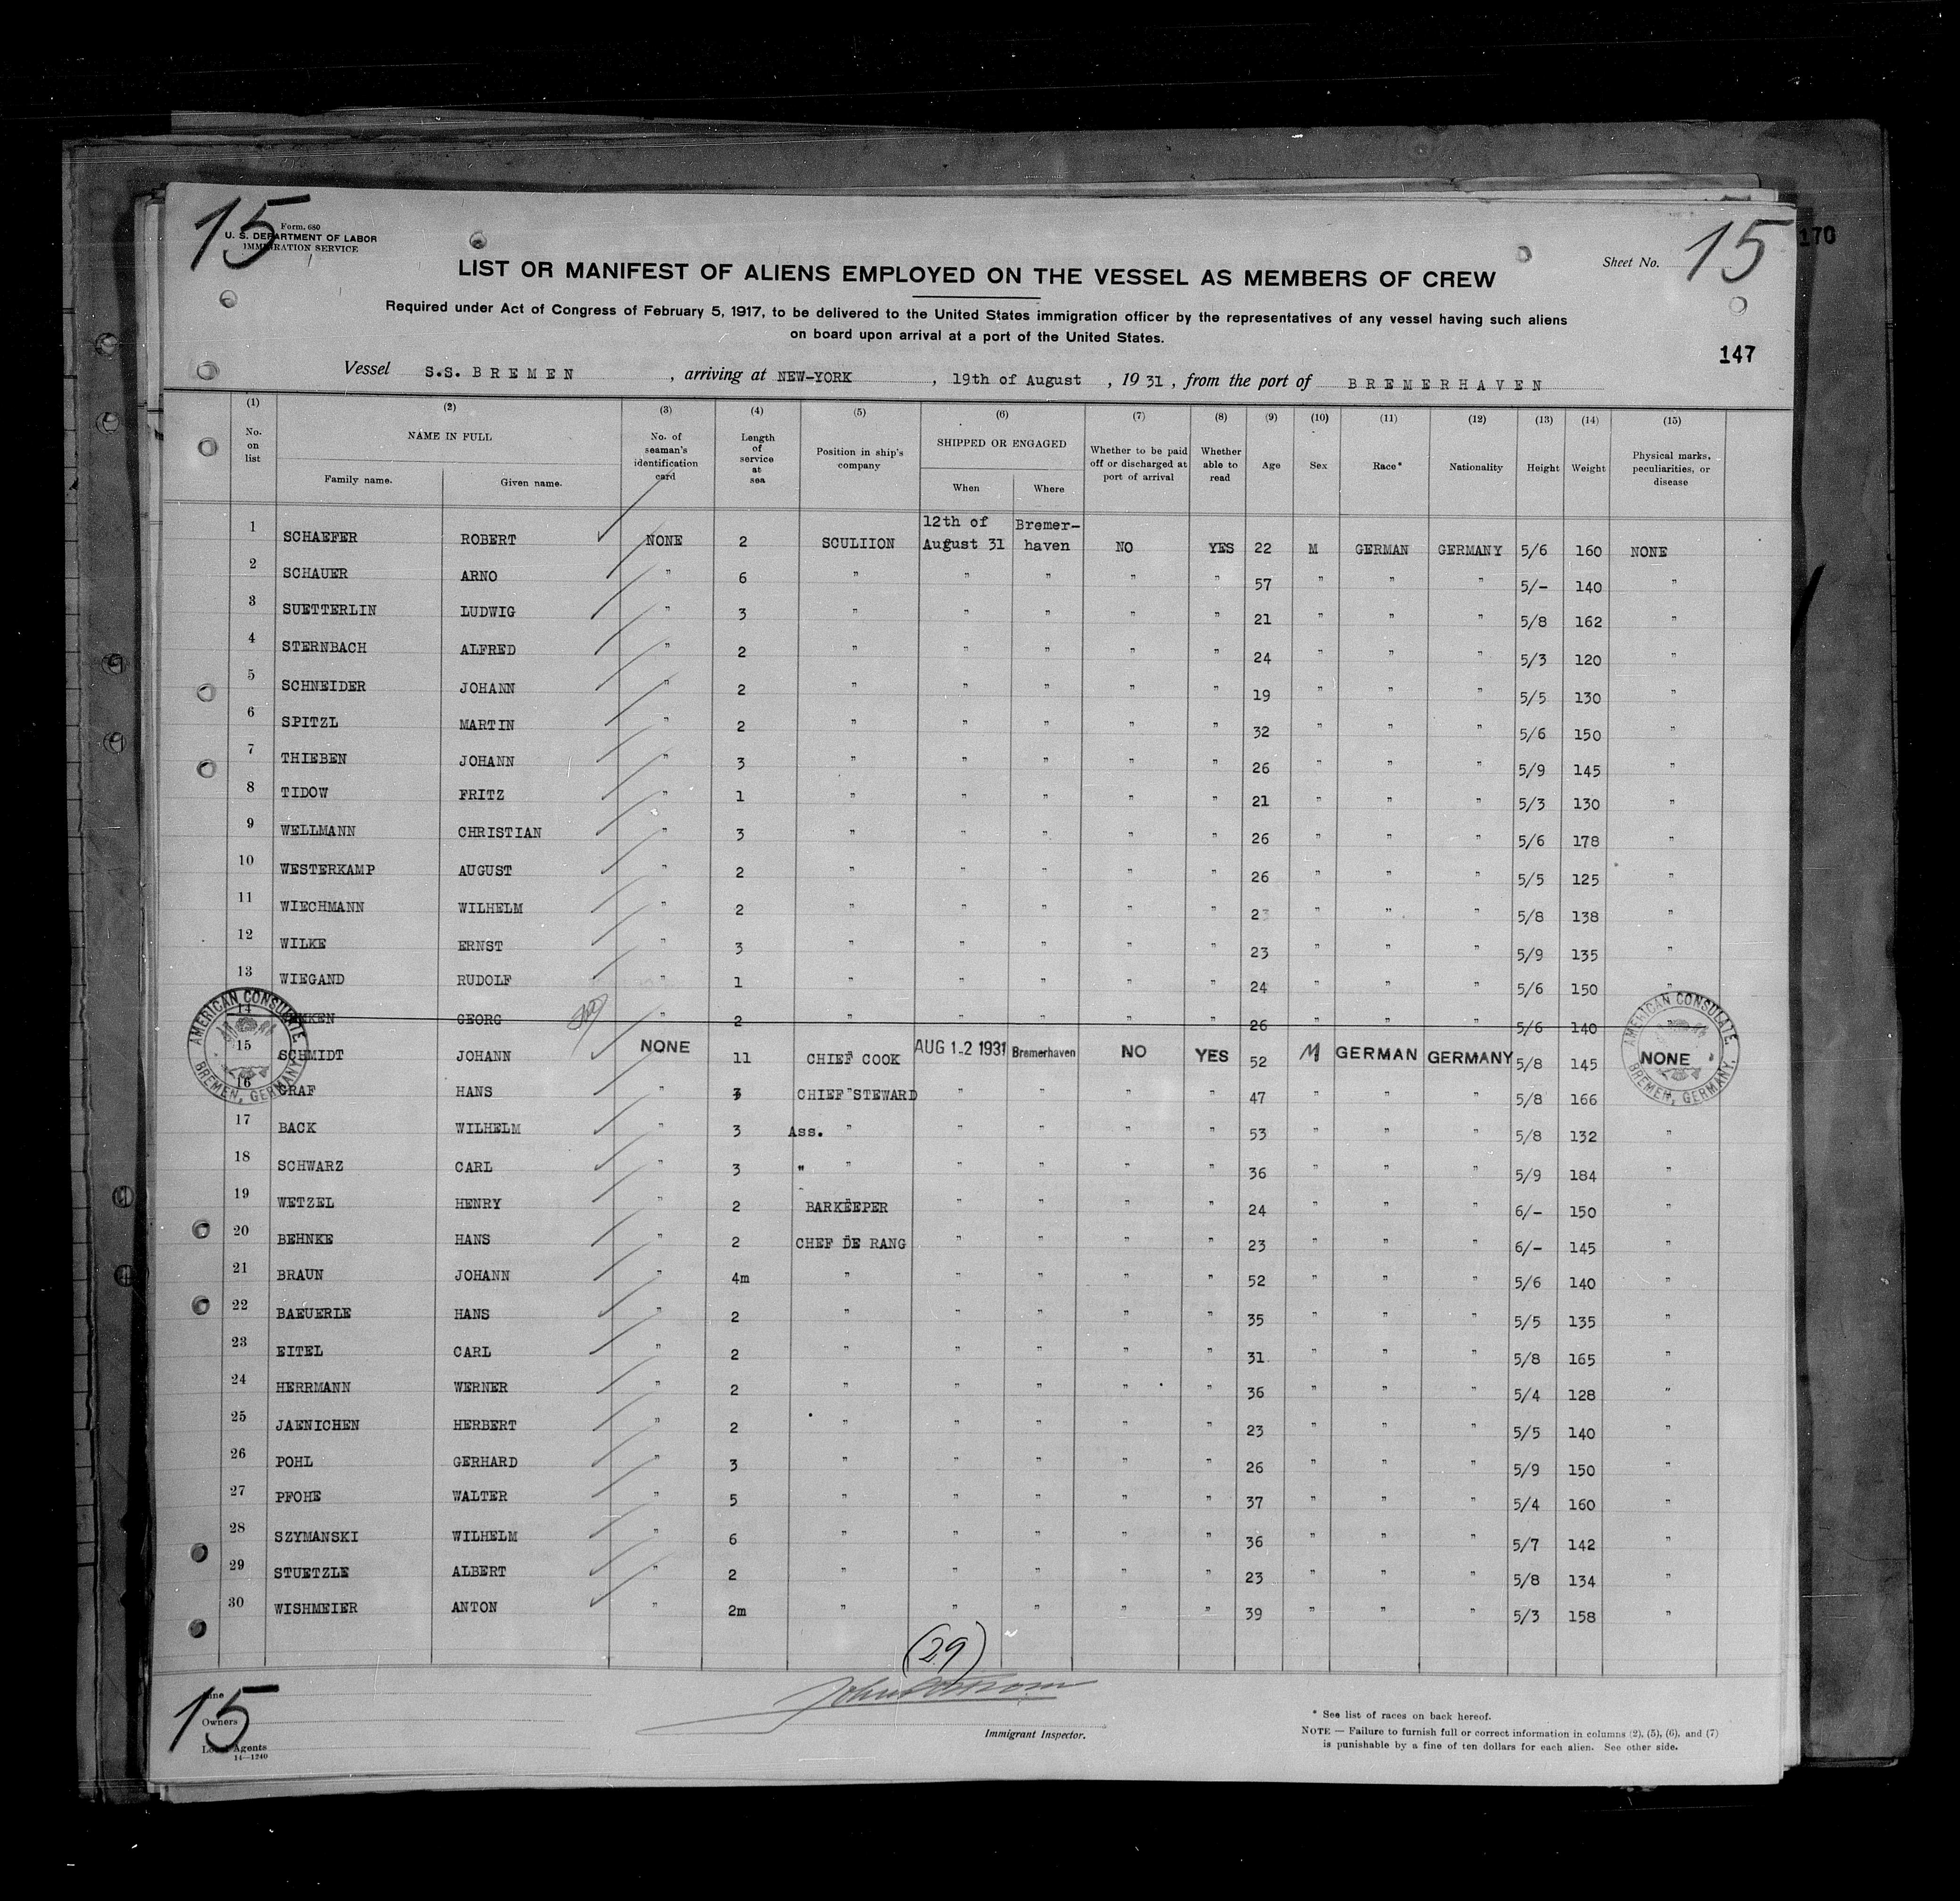 15
Form. 680
U. S. DEPARTMENT OF LABOR
IMMIGRATION SERVICE
Sheet No. 15
170
LIST OR MANIFEST OF ALIENS EMPLOYED ON THE VESSEL AS MEMBERS OF CREW
Required under Act of Congress of February 5, 1917, to be delivered to the United States immigration officer by the representatives of any vessel having such aliens
on board upon arrival at a port of the United States.
147
Vessel S.S. BREMEN , arriving at NEW-YORK , 19th of August , 19 31 , from the port of BREMERHAVEN
(1) (2) (3) (4) (5) (6) (7) (8) (9) (10) (11) (12) (13) (14) (15)
No. on list NAME IN FULL Family name. Given name. No. of seaman's identification card Length of service at sea Position in ship's company SHIPPED OR ENGAGED When Where Whether to be paid off or discharged at port of arrival Whether able to read Age Sex Race* Nationality Height Weight Physical marks, peculiarities, or disease
1 SCHAEFER ROBERT NONE 2 SCULIION 12th of August 31 Bremer-haven NO YES 22 M GERMAN GERMANY 5/6 160 NONE
2 SCHAUER ARNO " 6 " " " " " 57 " " " 5/- 140 "
3 SUETTERLIN LUDWIG " 3 " " " " " 21 " " " 5/8 162 "
4 STERNBACH ALFRED " 2 " " " " " 24 " " " 5/3 120 "
5 SCHNEIDER JOHANN " 2 " " " " " 19 " " " 5/5 130 "
6 SPITZL MARTIN " 2 " " " " " 32 " " " 5/6 150 "
7 THIEBEN JOHANN " 3 " " " " " 26 " " " 5/9 145 "
8 TIDOW FRITZ " 1 " " " " " 21 " " " 5/3 130 "
9 WELLMANN CHRISTIAN " 3 " " " " " 26 " " " 5/6 178 "
10 WESTERKAMP AUGUST " 2 " " " " " 26 " " " 5/5 125 "
11 WIECHMANN WILHELM " 2 " " " " " 23 " " " 5/8 138 "
12 WILKE ERNST " 3 " " " " " 23 " " " 5/9 135 "
13 WIEGAND RUDOLF " 1 " " " " " 24 " " " 5/6 150 "
14 GEORG " 2 " " " " " 26 " " " 5/6 140 "
15 SCHMIDT JOHANN NONE 11 CHIEF COOK AUG 12 1931 Bremerhaven NO YES 52 M GERMAN GERMANY 5/8 145 NONE
16 GRAF HANS " 3 CHIEF STEWARD " " " " 47 " " " 5/8 166 "
17 BACK WILHELM " 3 Ass. " " " " " 53 " " " 5/8 132 "
18 SCHWARZ CARL " 3 " " " " " " 36 " " " 5/9 184 "
19 WETZEL HENRY " 2 BARKEEPER " " " " 24 " " " 6/- 150 "
20 BEHNKE HANS " 2 CHEF DE RANG " " " " 23 " " " 6/- 145 "
21 BRAUN JOHANN " 4m " " " " " 52 " " " 5/6 140 "
22 BAEUERLE HANS " 2 " " " " " 35 " " " 5/5 135 "
23 EITEL CARL " 2 " " " " " 31 " " " 5/8 165 "
24 HERRMANN WERNER " 2 " " " " " 36 " " " 5/4 128 "
25 JAENICHEN HERBERT " 2 " " " " " 23 " " " 5/5 140 "
26 POHL GERHARD " 3 " " " " " 26 " " " 5/9 150 "
27 PFOHE WALTER " 5 " " " " " 37 " " " 5/4 160 "
28 SZYMANSKI WILHELM " 6 " " " " " 36 " " " 5/7 142 "
29 STUETZLE ALBERT " 2 " " " " " 23 " " " 5/8 134 "
30 WISHMEIER ANTON " 2m " " " " " 39 " " " 5/3 158 "
AMERICAN CONSULATE
BREMEN, GERMANY.
AMERICAN CONSULATE.
BREMEN, GERMANY.
(29)
15
Owners
Local Agents
14—1240
Immigrant Inspector.
* See list of races on back hereof.
NOTE — Failure to furnish full or correct information in columns (2), (5), (6), and (7)
is punishable by a fine of ten dollars for each alien. See other side.